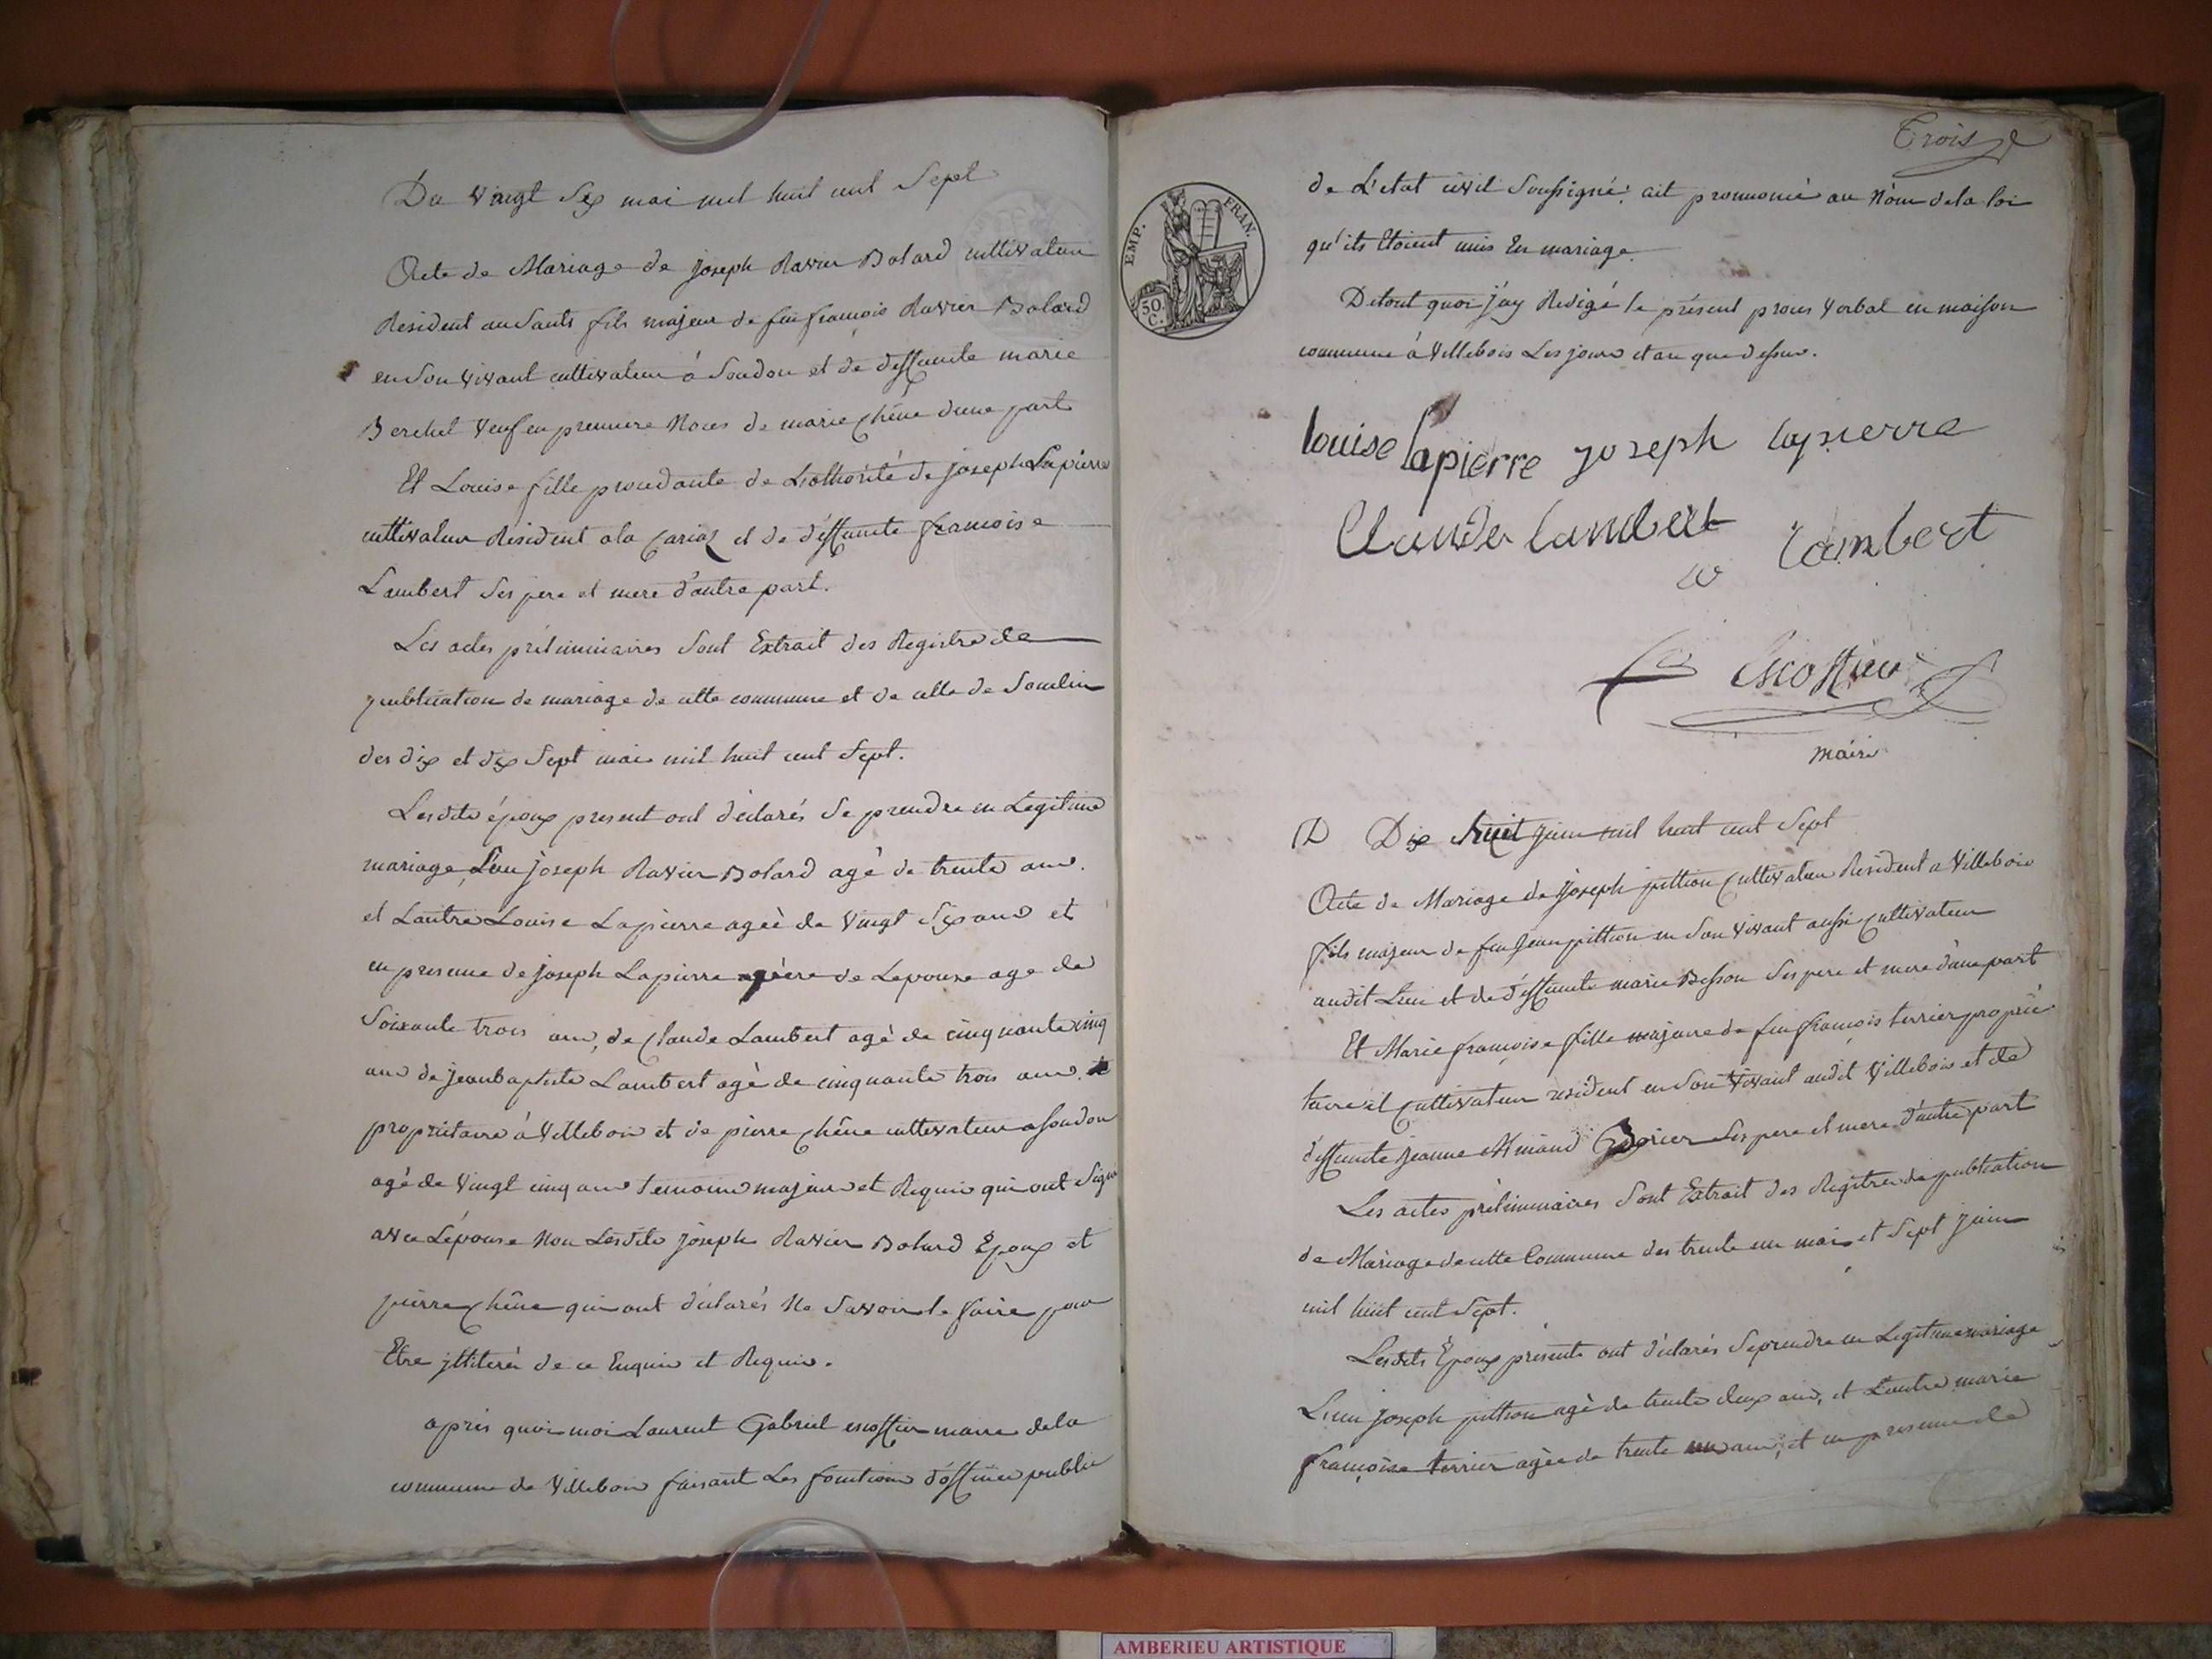 Du vingt Six mai mil huit cent Sept
Acte de Mariage de joseph Ravier Bolard cultivateur
Résident au Sault fils majeur de feu françois Ravier Bolard
en Son vivant cultivateur à Soudon et de deffunte marie
Berchet veuf en premiere Noces de marie Chêne dune part
Et Louise fille procedante de L'othorité de joseph Lapierre
cultivateur Résident a la et de déffunte françoise
Lambert Ses pere et mere d'autre part.
Les actes préliminaires Sont Extrait des Registre de
publication de mariage de cette commune et de celle de Souclin
des dix et dix Sept mai mil huit cent Sept.
Lesdits époux present ont déclarés Se prendre en Legitime
mariage, L'un joseph Ravier Bolard agé de trente ans.
et Lautre Louise Lapierre ageé de vingt Six ans et
en presence de joseph Lapierre père de Lepouse age de
Soixante trois ans, de Claude Lambert agé de cinquante cinq
ans de jeanbaptiste Lambert agé de cinquante trois ans
propriétaire à Villebois et de pierre Chêne cultivateur a Soudon
agé de vingt cinq ans temoins majeurs et Requis qui ont Signé
avec Lépouse Non Lesdits joseph Ravier Bolard Epoux et
pierre Chêne qui ont déclarés Ne Savoir le faire pour
Etre jlliterés de ce Enquis et Requis.
après quoi moi Laurent Gabriel escoffier maire de la
commune de Villebois faisant Les fonctions d'officier public
Trois
EMP. FRAN.
50 C.
de L'etat civil Soussigné, ait prononcé au Nom de la loi
qu'ils Etoient unis En mariage.
De tout quoi j'ay Rédigé le présent proces verbal en maison
commune à Villebois Les jours et an que dessus.
louise lapierre joseph lapierre
Claude lambert Lambert
Escoffier
maire
D Dix huit juin mil huit cent Sept
Acte de Mariage de joseph pittion Cultivateur Résident a Villebois
fils majeur de feu Jean pittion en Son vivant aussi Cultivateur
audit Lieu et de déffunte marie Besson Ses pere et mere d'une part
Et Marie françoise fille majeure de feu françois terrier proprié
taire et Cultivateur résident en Son vivant audit Villebois et de
déffunte Jeanne Ses pere et mere d'autre part
Les actes préliminaires Sont Extrait des Régitres de publication
de Mariage de cette Commune des trente un mai et Sept Juin
mil huit cent Sept.
Lesdits Epoux présents ont déclarés Se prendre en Legitime mariage
L'un joseph pittion agé de trente deux ans, et L'autre marie
françoise terrier agée de trente ans, et en presence de
AMBERIEU ARTISTIQUE